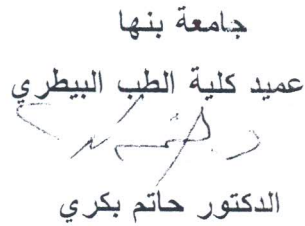 جامعة بنها
عميد كلية الطب البيطري
الدكتور حاتم بكري